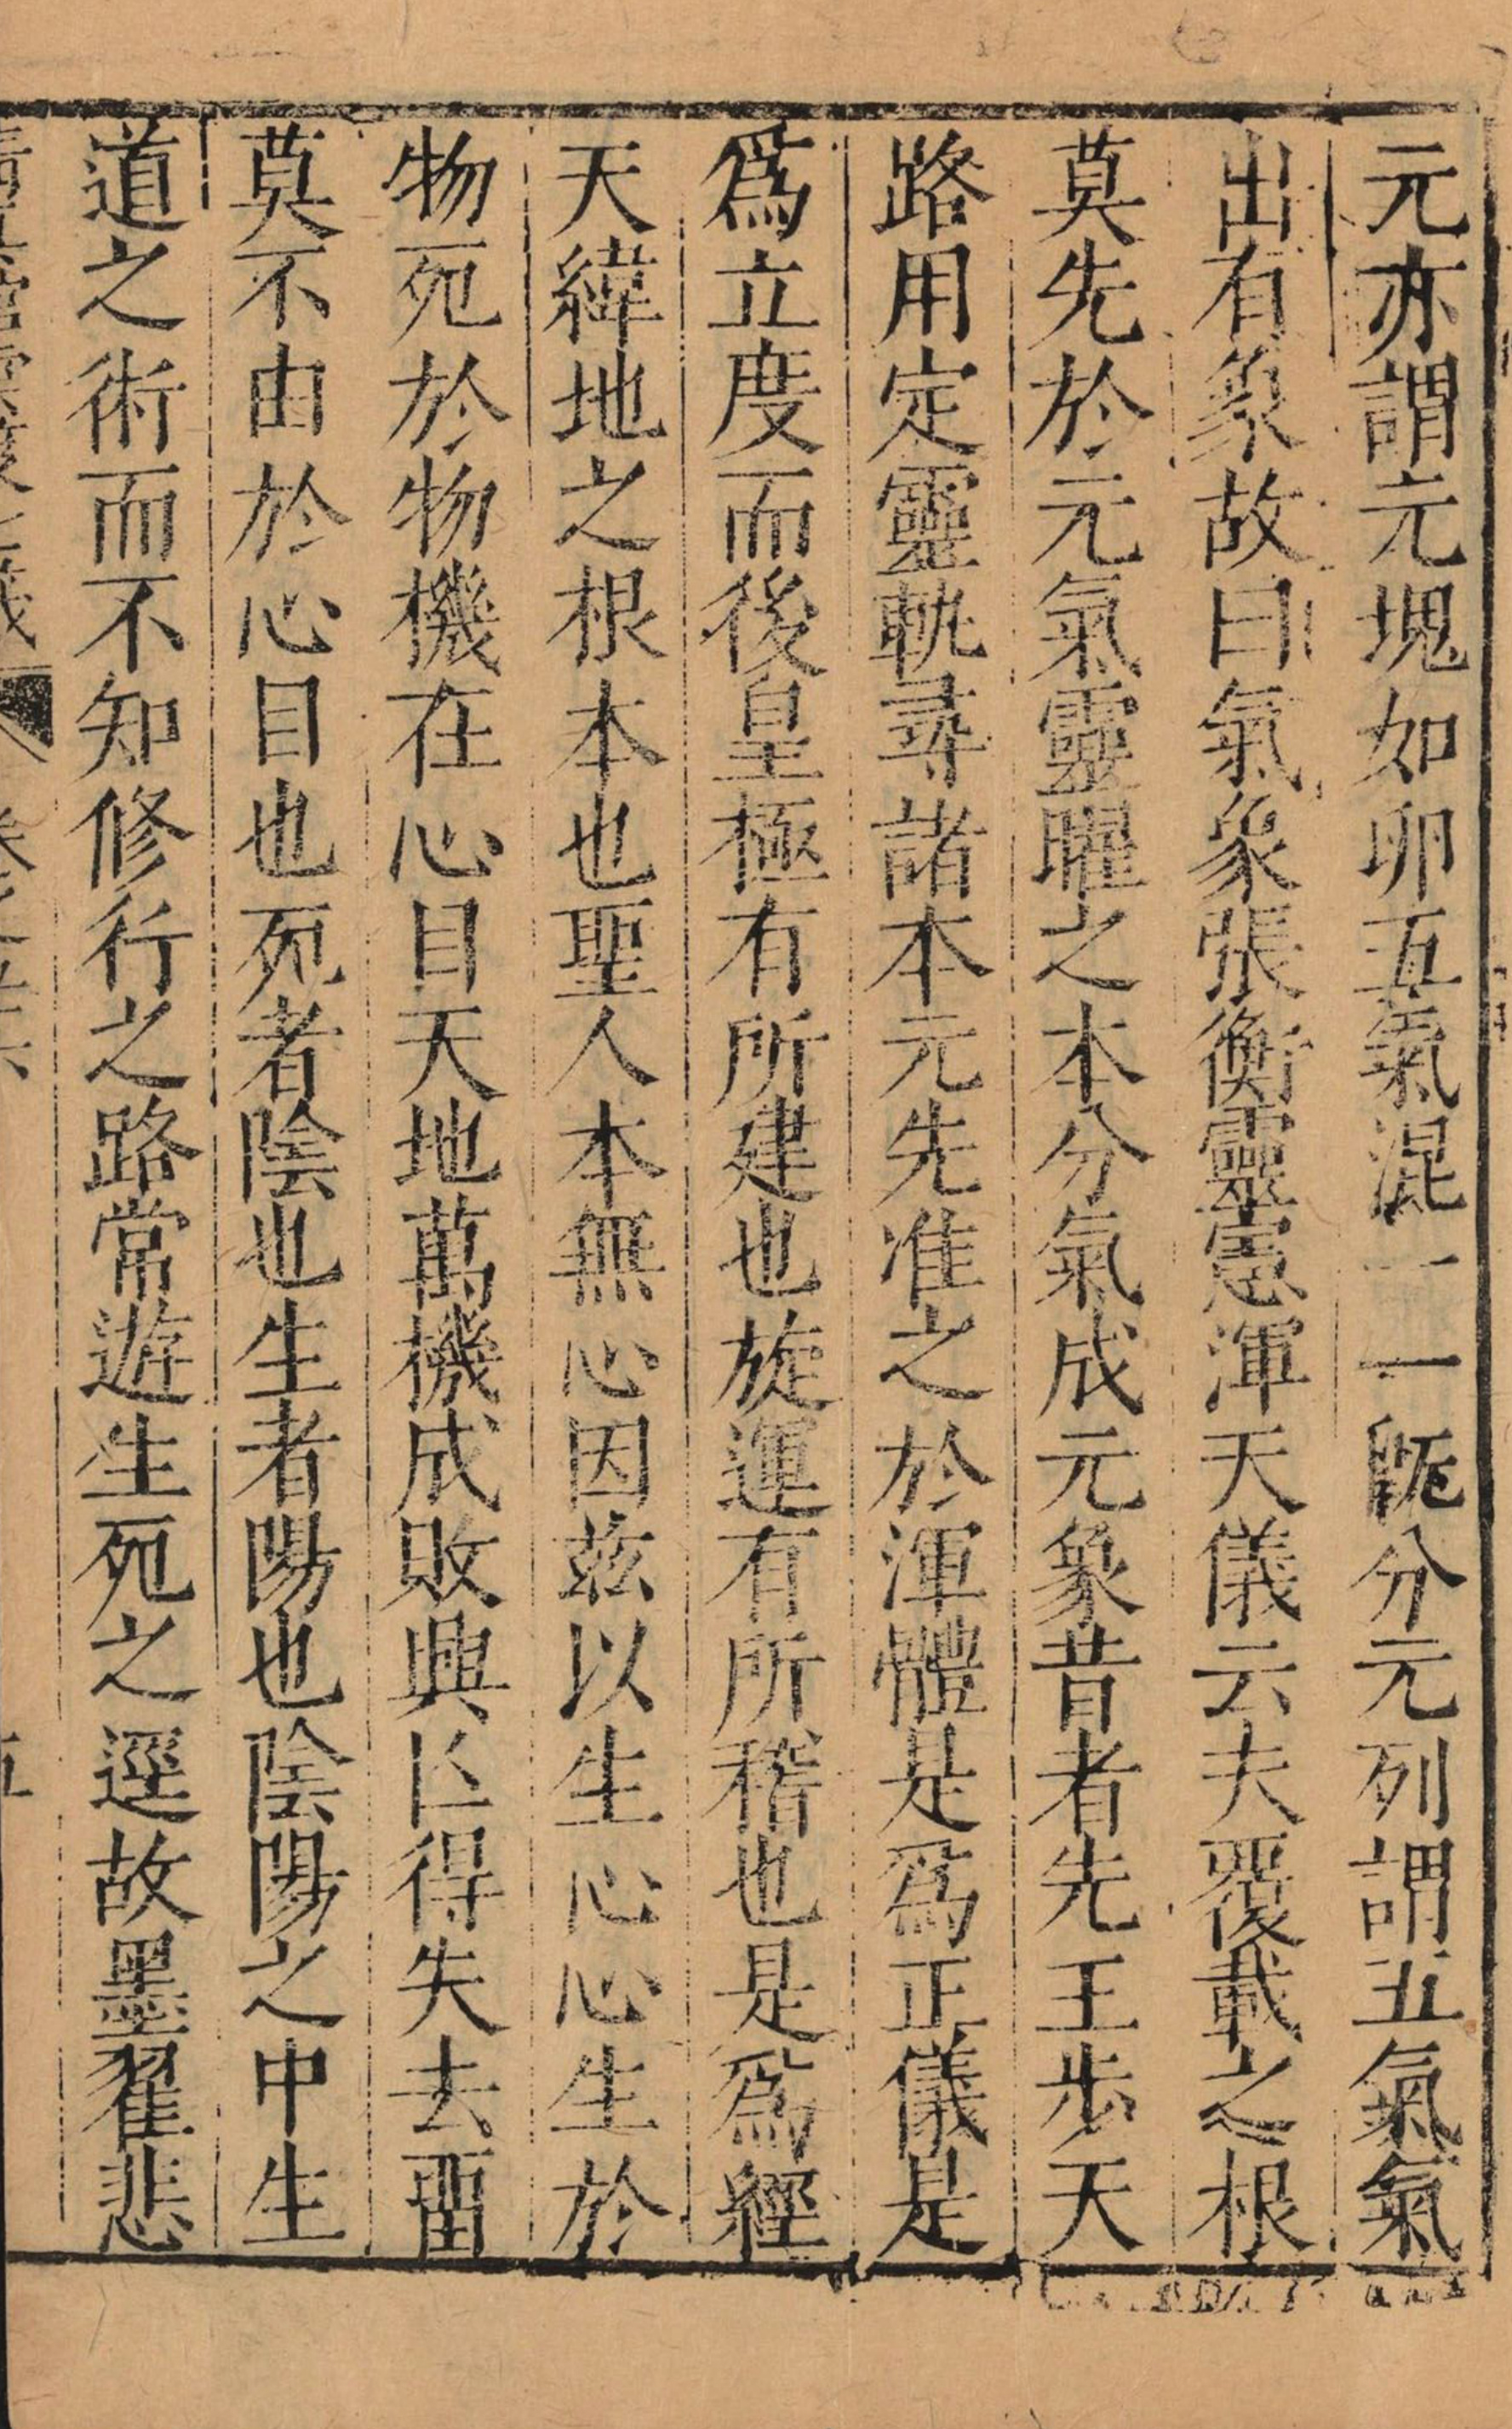 元亦謂元塊如卵五氣混一一旣分元列謂五氣氣
出有象故曰氣象張衡靈憲渾天儀云夫覆載之根
莫先於元氣靈曜之本分氣成元象昔者先王步天
路用定靈軌尋諸本元先准之於渾體是爲正儀是
爲立度而後皇極有所建也旋運有所稽也是爲經
天緯地之根本也聖人本無心因茲以生心心生於
物死於物機在心目天地萬機成敗興亾得失去畱
莫不由於心目也死者陰也生者陽也陰陽之中生
道之術而不知修行之路常遊生死之逕故墨翟悲